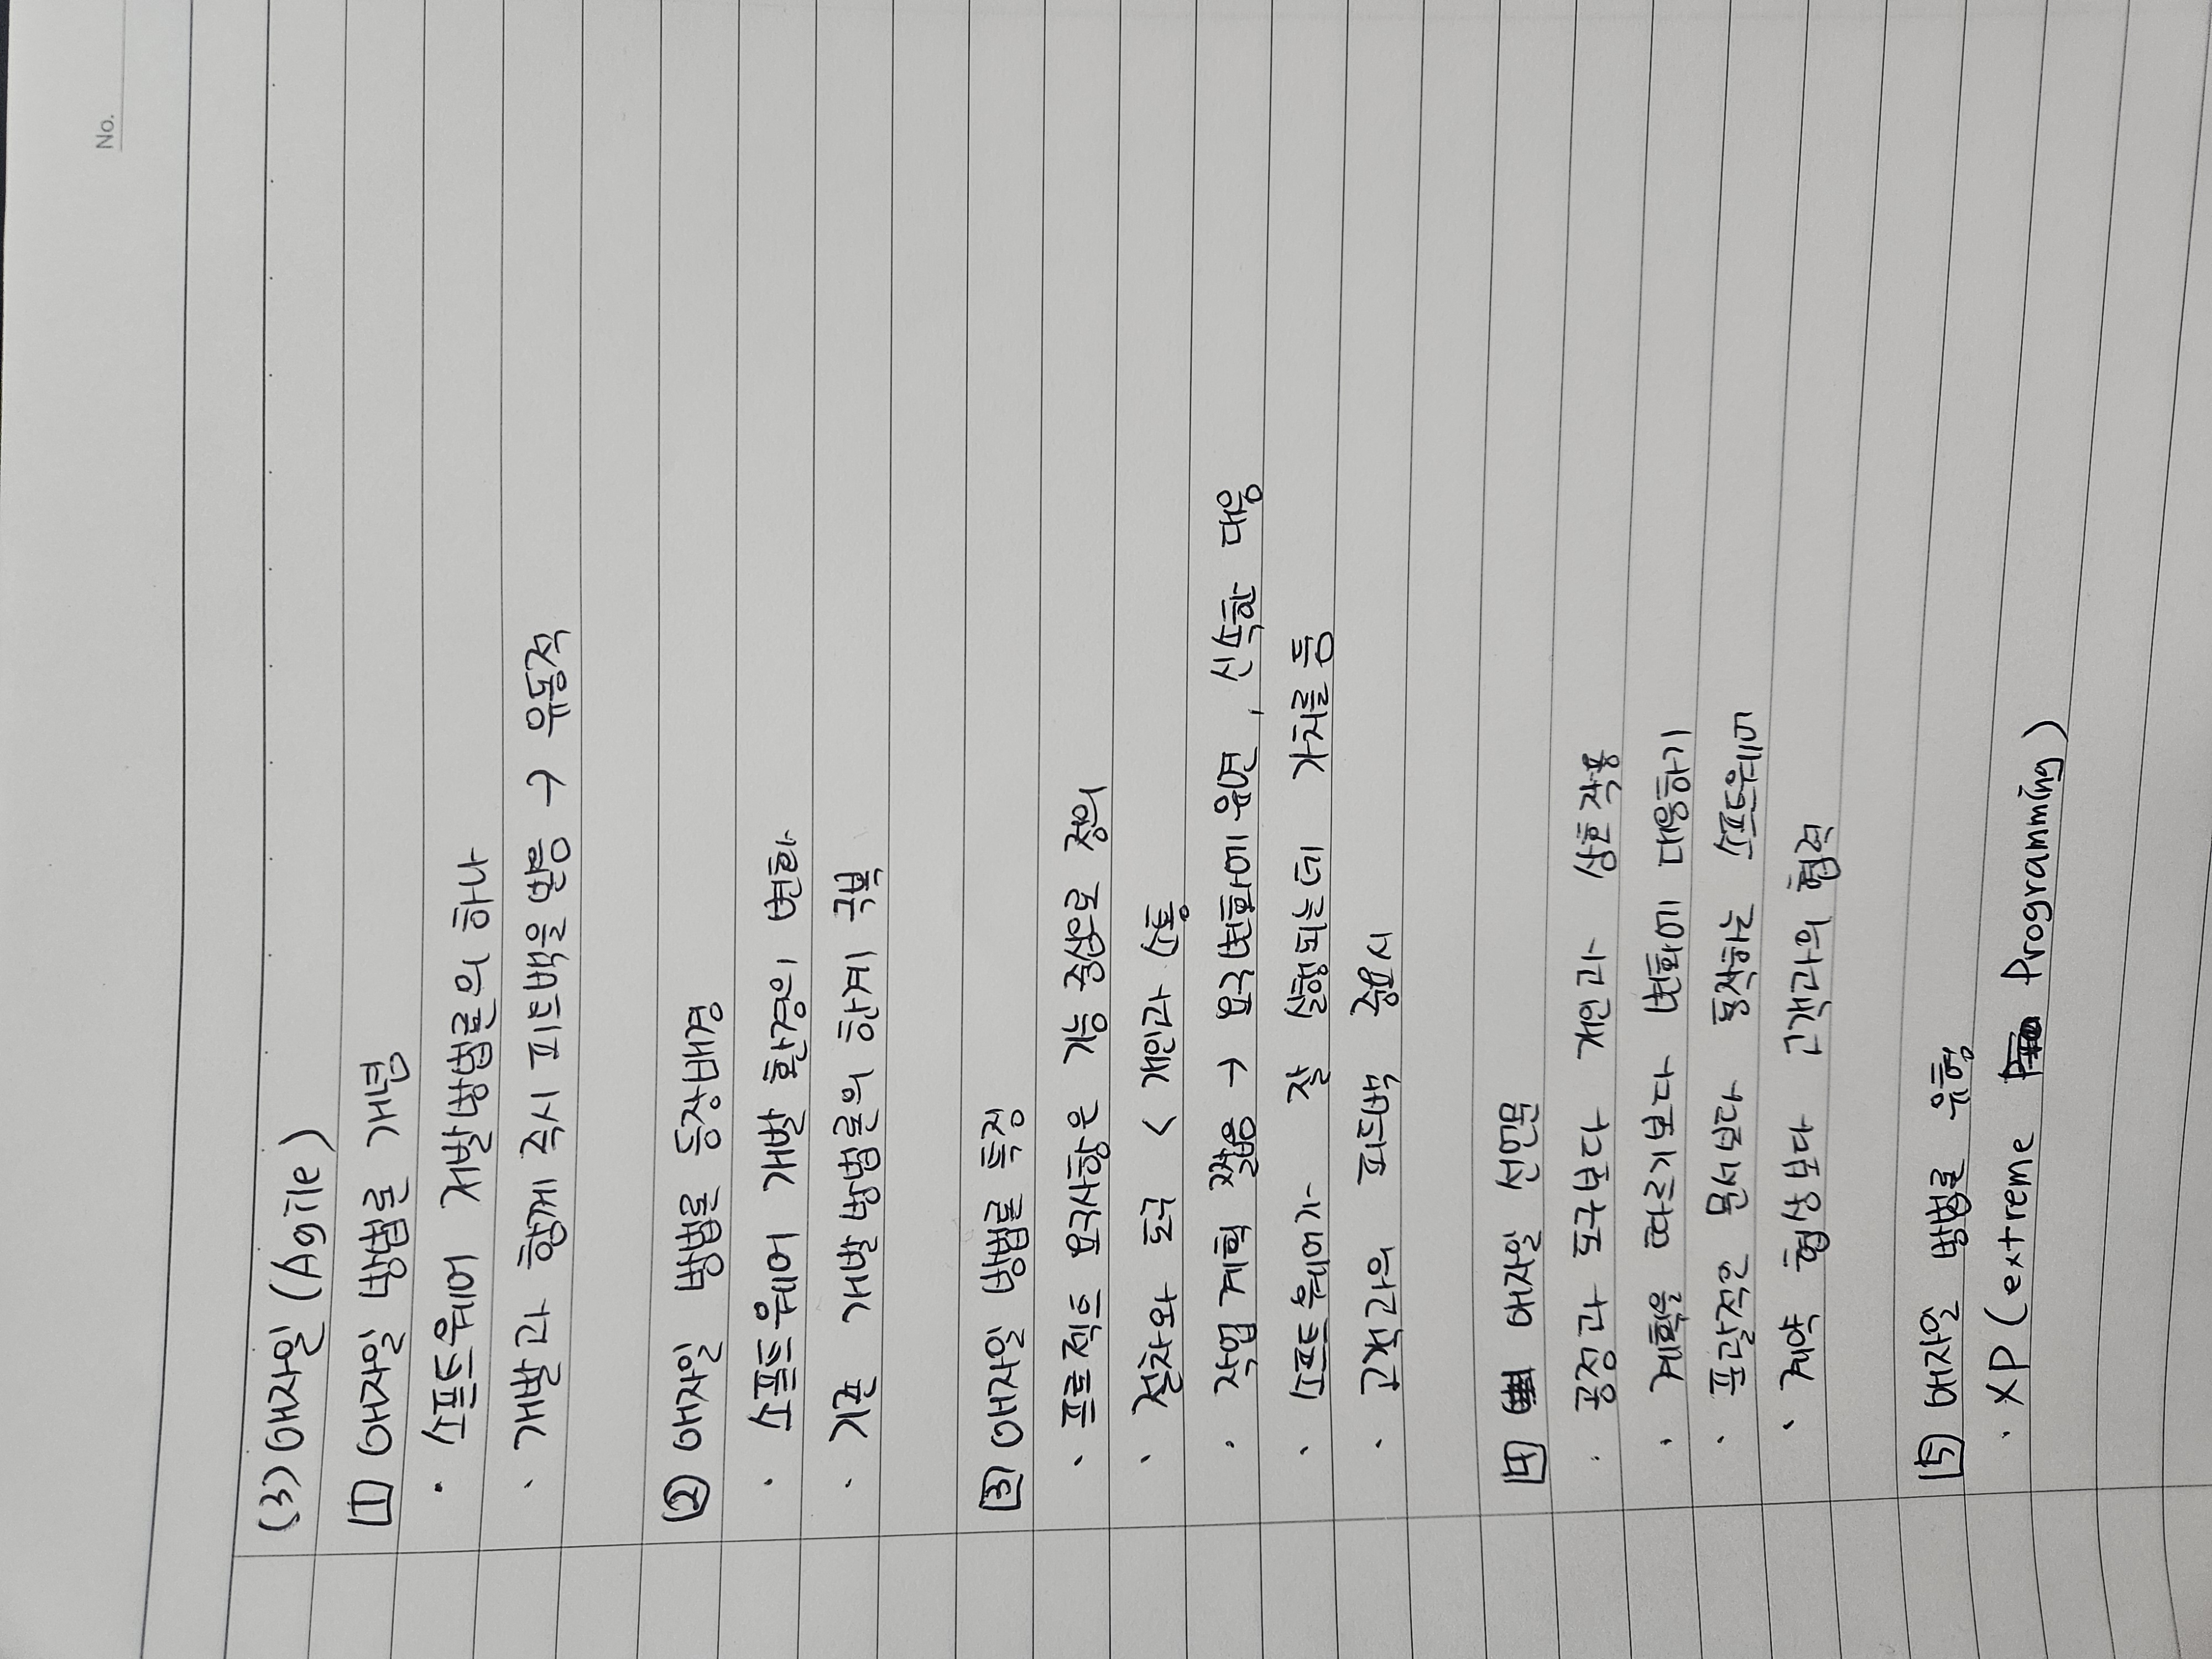 No.
(3) 애자일 (Agile)
1 애자일 방법론 개념
· 소프트웨어 개발방법론의 하나
· 개발과 함께 즉시 피드백을 받음 → 유동적
2 애자일 방법론 등장배경
· 소프트웨어 개발 환경의 변화
· 기존 개발방법론의 한계 극복
3 애자일 방법론 특징
· 프로젝트 요구사항은 기능 중심으로 정의
· 절차와 도구 < 개인과 소통
· 작업 계획 짧음 → 요구변화에 유연, 신속한 대응
· 소프트웨어가 잘 실행되는데 가치를 둠
· 고객과의 피드백 중요시
4 애자일 선언문
· 공정과 도구보다 개인과 상호작용
· 계획을 따르기보다 변화에 대응하기
· 포괄적인 문서보다 동작하는 소프트웨어
· 계약 협상보다 고객과의 협력
5 애자일 방법론 유형
· XP (extreme Programming)